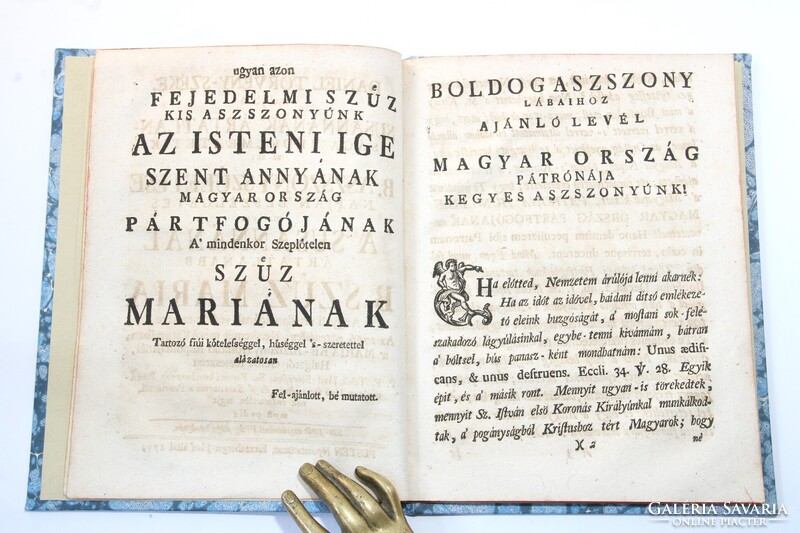 ugyan azon
FEJEDELMI SZűZ
KIS ASZSZONYÚNK
AZ ISTENI IGE
SZENT ANNYÁNAK
MAGYAR ORSZÁG
PÁRTFOGÓJÁNAK
A' mindenkor Szeplőtelen
SZűZ
MARIÁNAK
Tartozó fiúi kötelességgel, hűséggel 's-szeretettel
alázatosan
Fel-ajánlott, bé mutatott.
BOLDOGASZSZONY
LÁBAIHOZ
AJÁNLÓ LEVÉL
MAGYAR ORSZÁG
PÁTRÓNÁJA
KEGYES ASZSZONYÚNK!
Ha előtted, Nemzetem árúlója lenni akarnék:
Ha az idöt az idövel, haidani ditsö emlékeze-
tö eleink buzgóságát, a' mostani sok-félé
szakadozó lágyúlásinkal, egybe-tenni kivánnám, bátran
a' bóltsel, bús panasz-ként mondhatnám: Unus ædifi
cans, & unus destruens. Eccli. 34. ℣. 28. Egyik
épit, és a' másik ront. Mennyit ugyan-is törekedtek,
mennyit Sz. István elsö Koronás Királyúnkal munkálkod-
tak, a' pogányságból Kristushoz tért Magyarok; hogy
X 2 né
GALERIA SAVARIA
ONLINE PIACTÉR